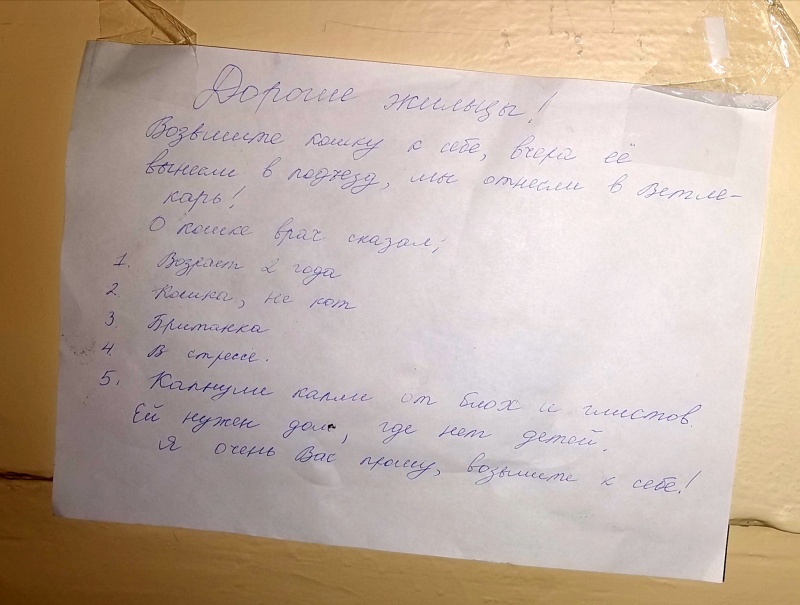 Дорогие жильцы!
Возьмите кошку к себе, вчера её
вынесли в подъезд, мы отнесли в Ветле-
карь!
О кошке врач сказал:
1. Возраст 2 года
2. Кошка, не кот
3. Британка
4. В стрессе.
5. Капнули капли от блох и глистов.
Ей нужен дом, где нет детей.
Я очень Вас прошу, возьмите к себе!